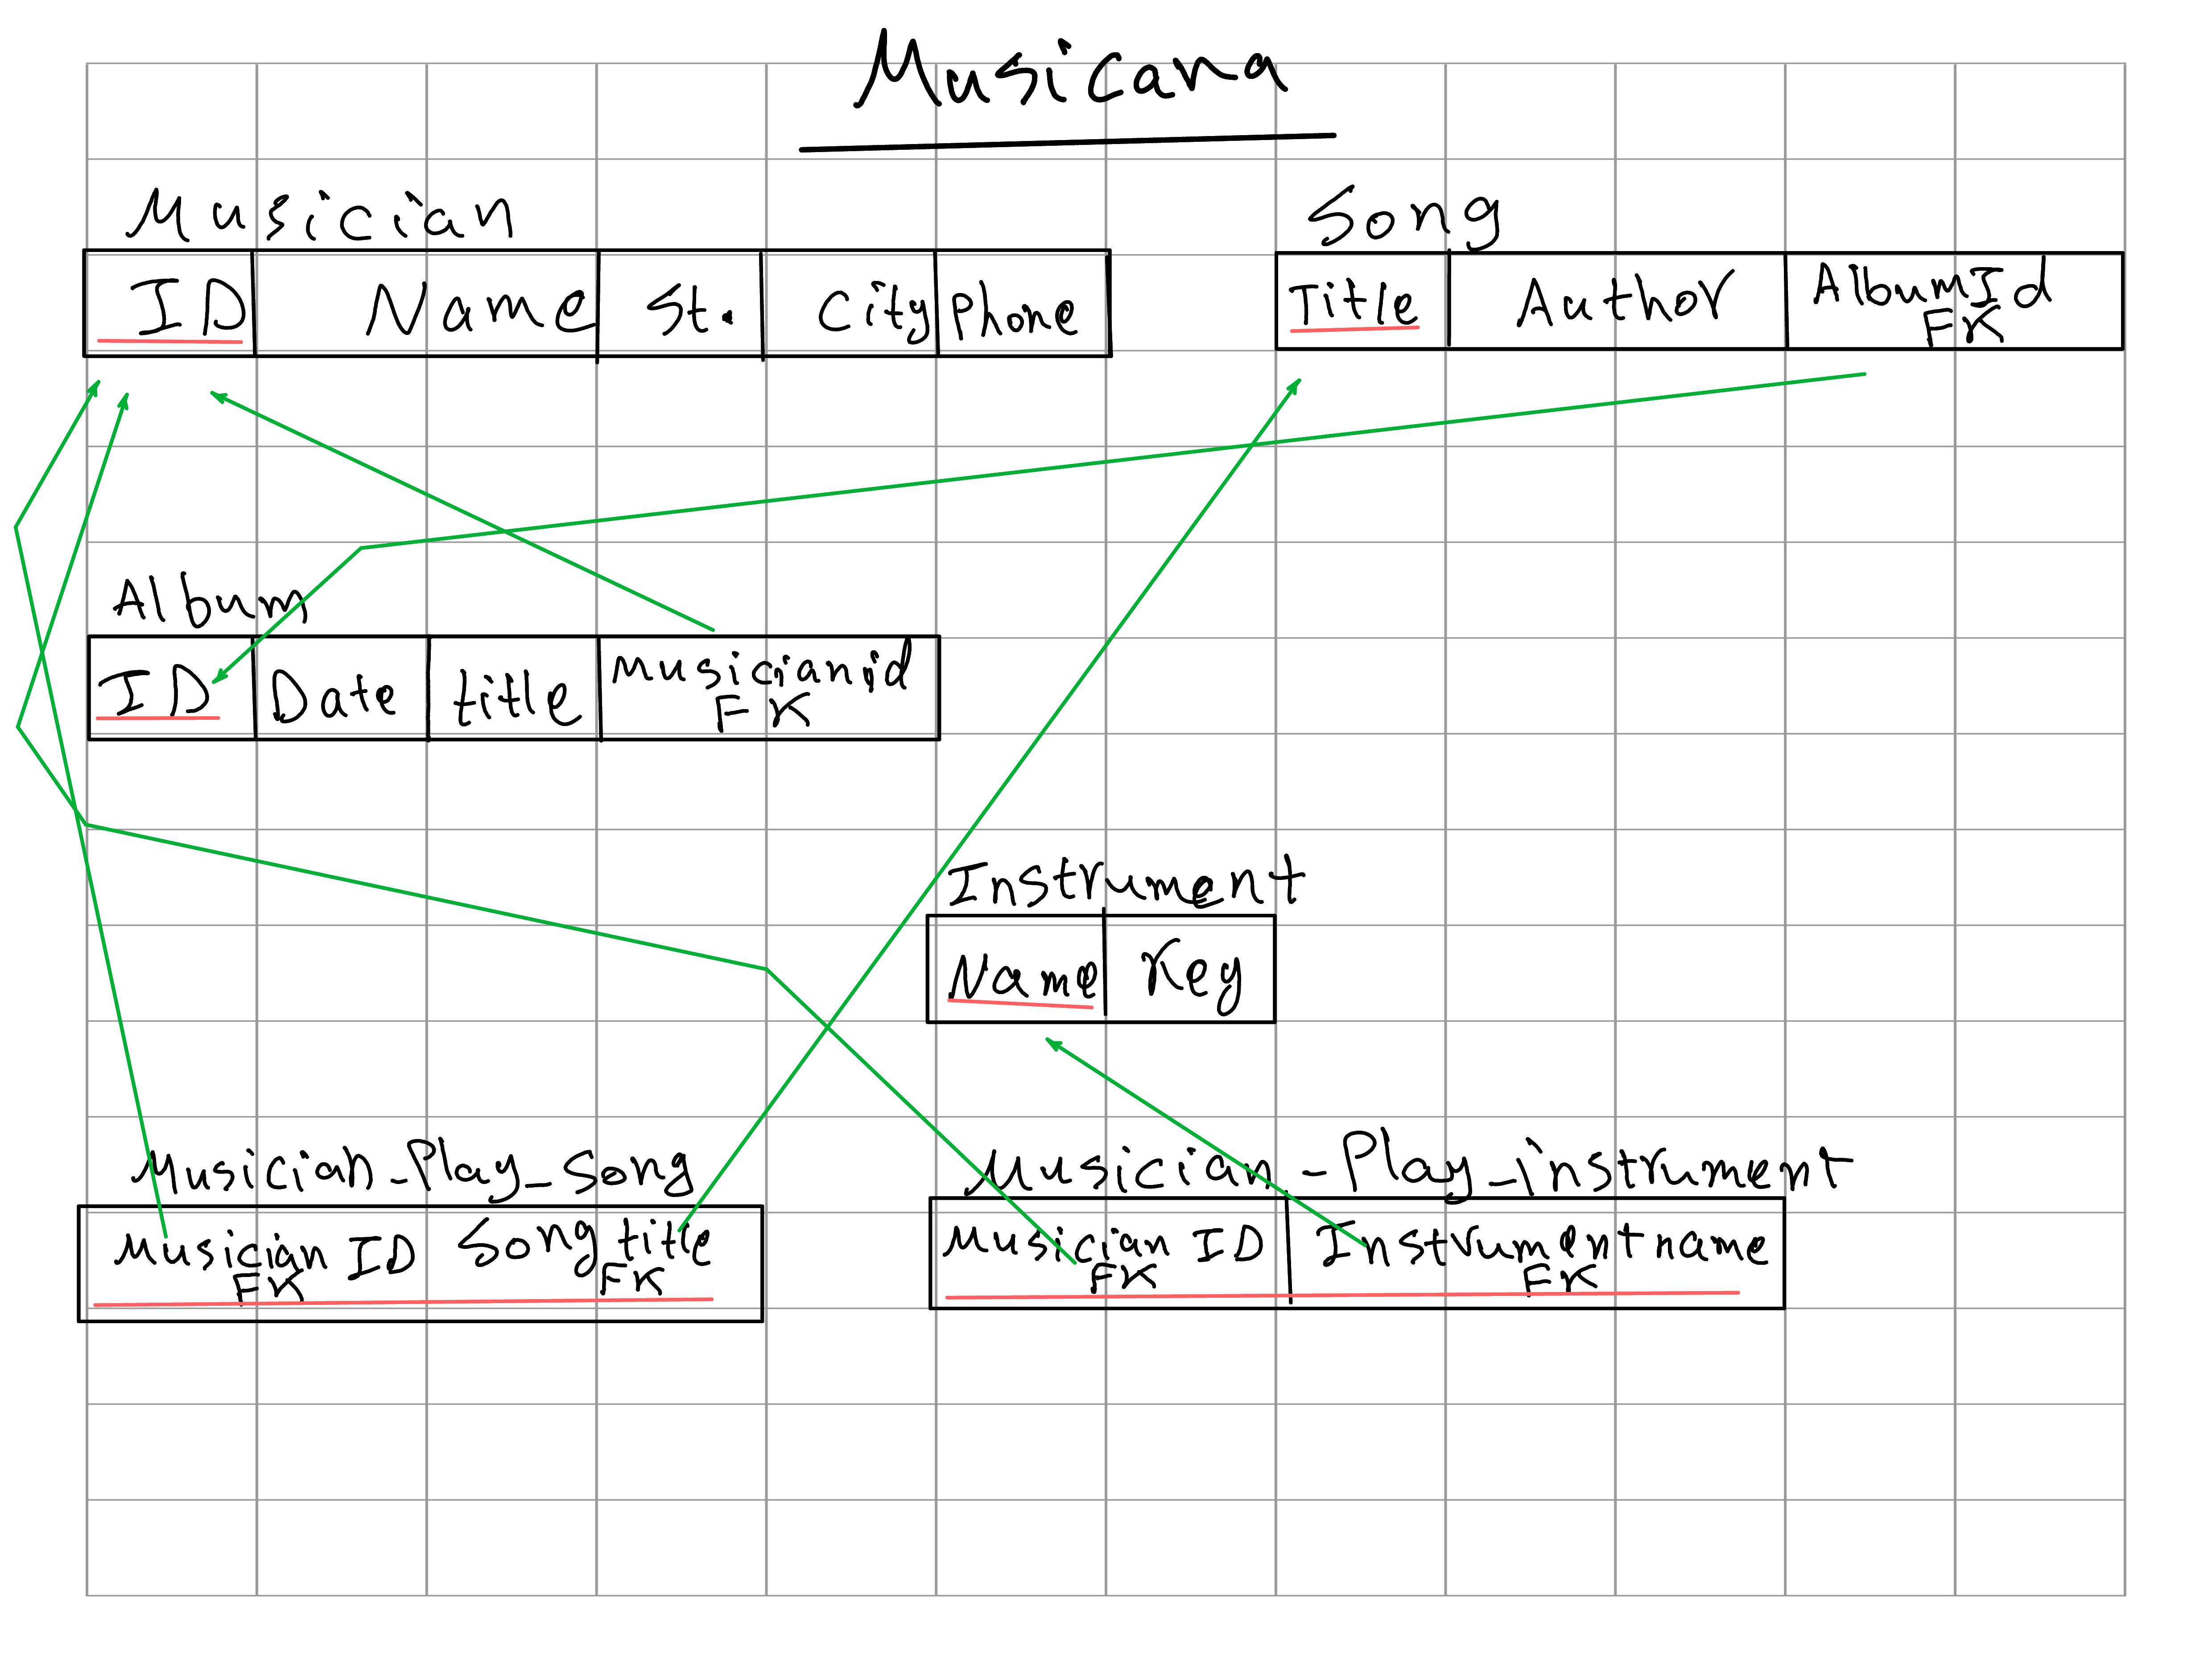 Musicana
Musician
ID Name St. City Phone
Song
Title Author AlbumId
FK
Album
ID Date title Musicianid
FK
Instrument
Name Key
Musician_Play_Song
Musician ID Song title
FK FK
Musician_Play_instrument
Musician ID Instrument name
FK FK